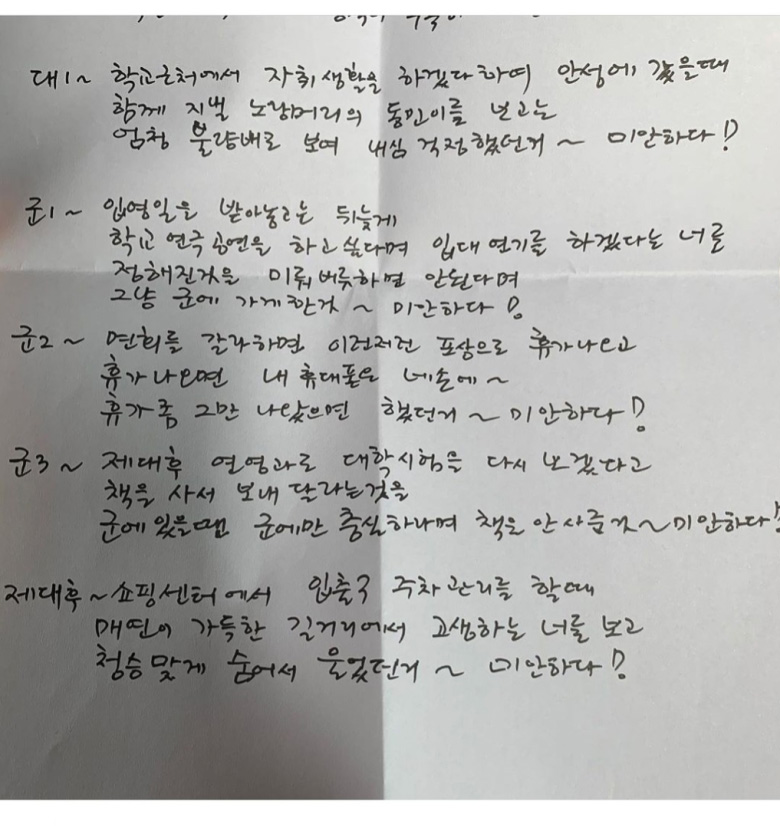 대1~ 학교근처에서 자취생활을 하겠다하여 안성에 갔을때
함께 지낼 노랑머리의 동민이를 보고는
엄청 불량배로 보여 내심 걱정했던거~ 미안하다!
군1~ 입영일을 받아놓고는 뒤늦게
학교 연극공연을 하고싶다며 입대연기를 하겠다는 너를
정해진것을 미뤄버릇하면 안된다며
그냥 군에 가게한것~ 미안하다!
군2~ 면회를 갈라하면 이런저런 포상으로 휴가나오고
휴가나오면 내 휴대폰은 네손에~
휴가좀 그만 나왔으면 했던거~ 미안하다!
군3~ 제대후 연영과로 대학시험을 다시 보겠다고
책을 사서 보내 달라는것을
군에있을땐 군에만 충실하라며 책은 안사준것~미안하다!
제대후~쇼핑센터에서 입출구 주차관리를 할때
매연이 가득한 길거리에서 고생하는 너를 보고
청승맞게 숨어서 울었던거~ 미안하다!